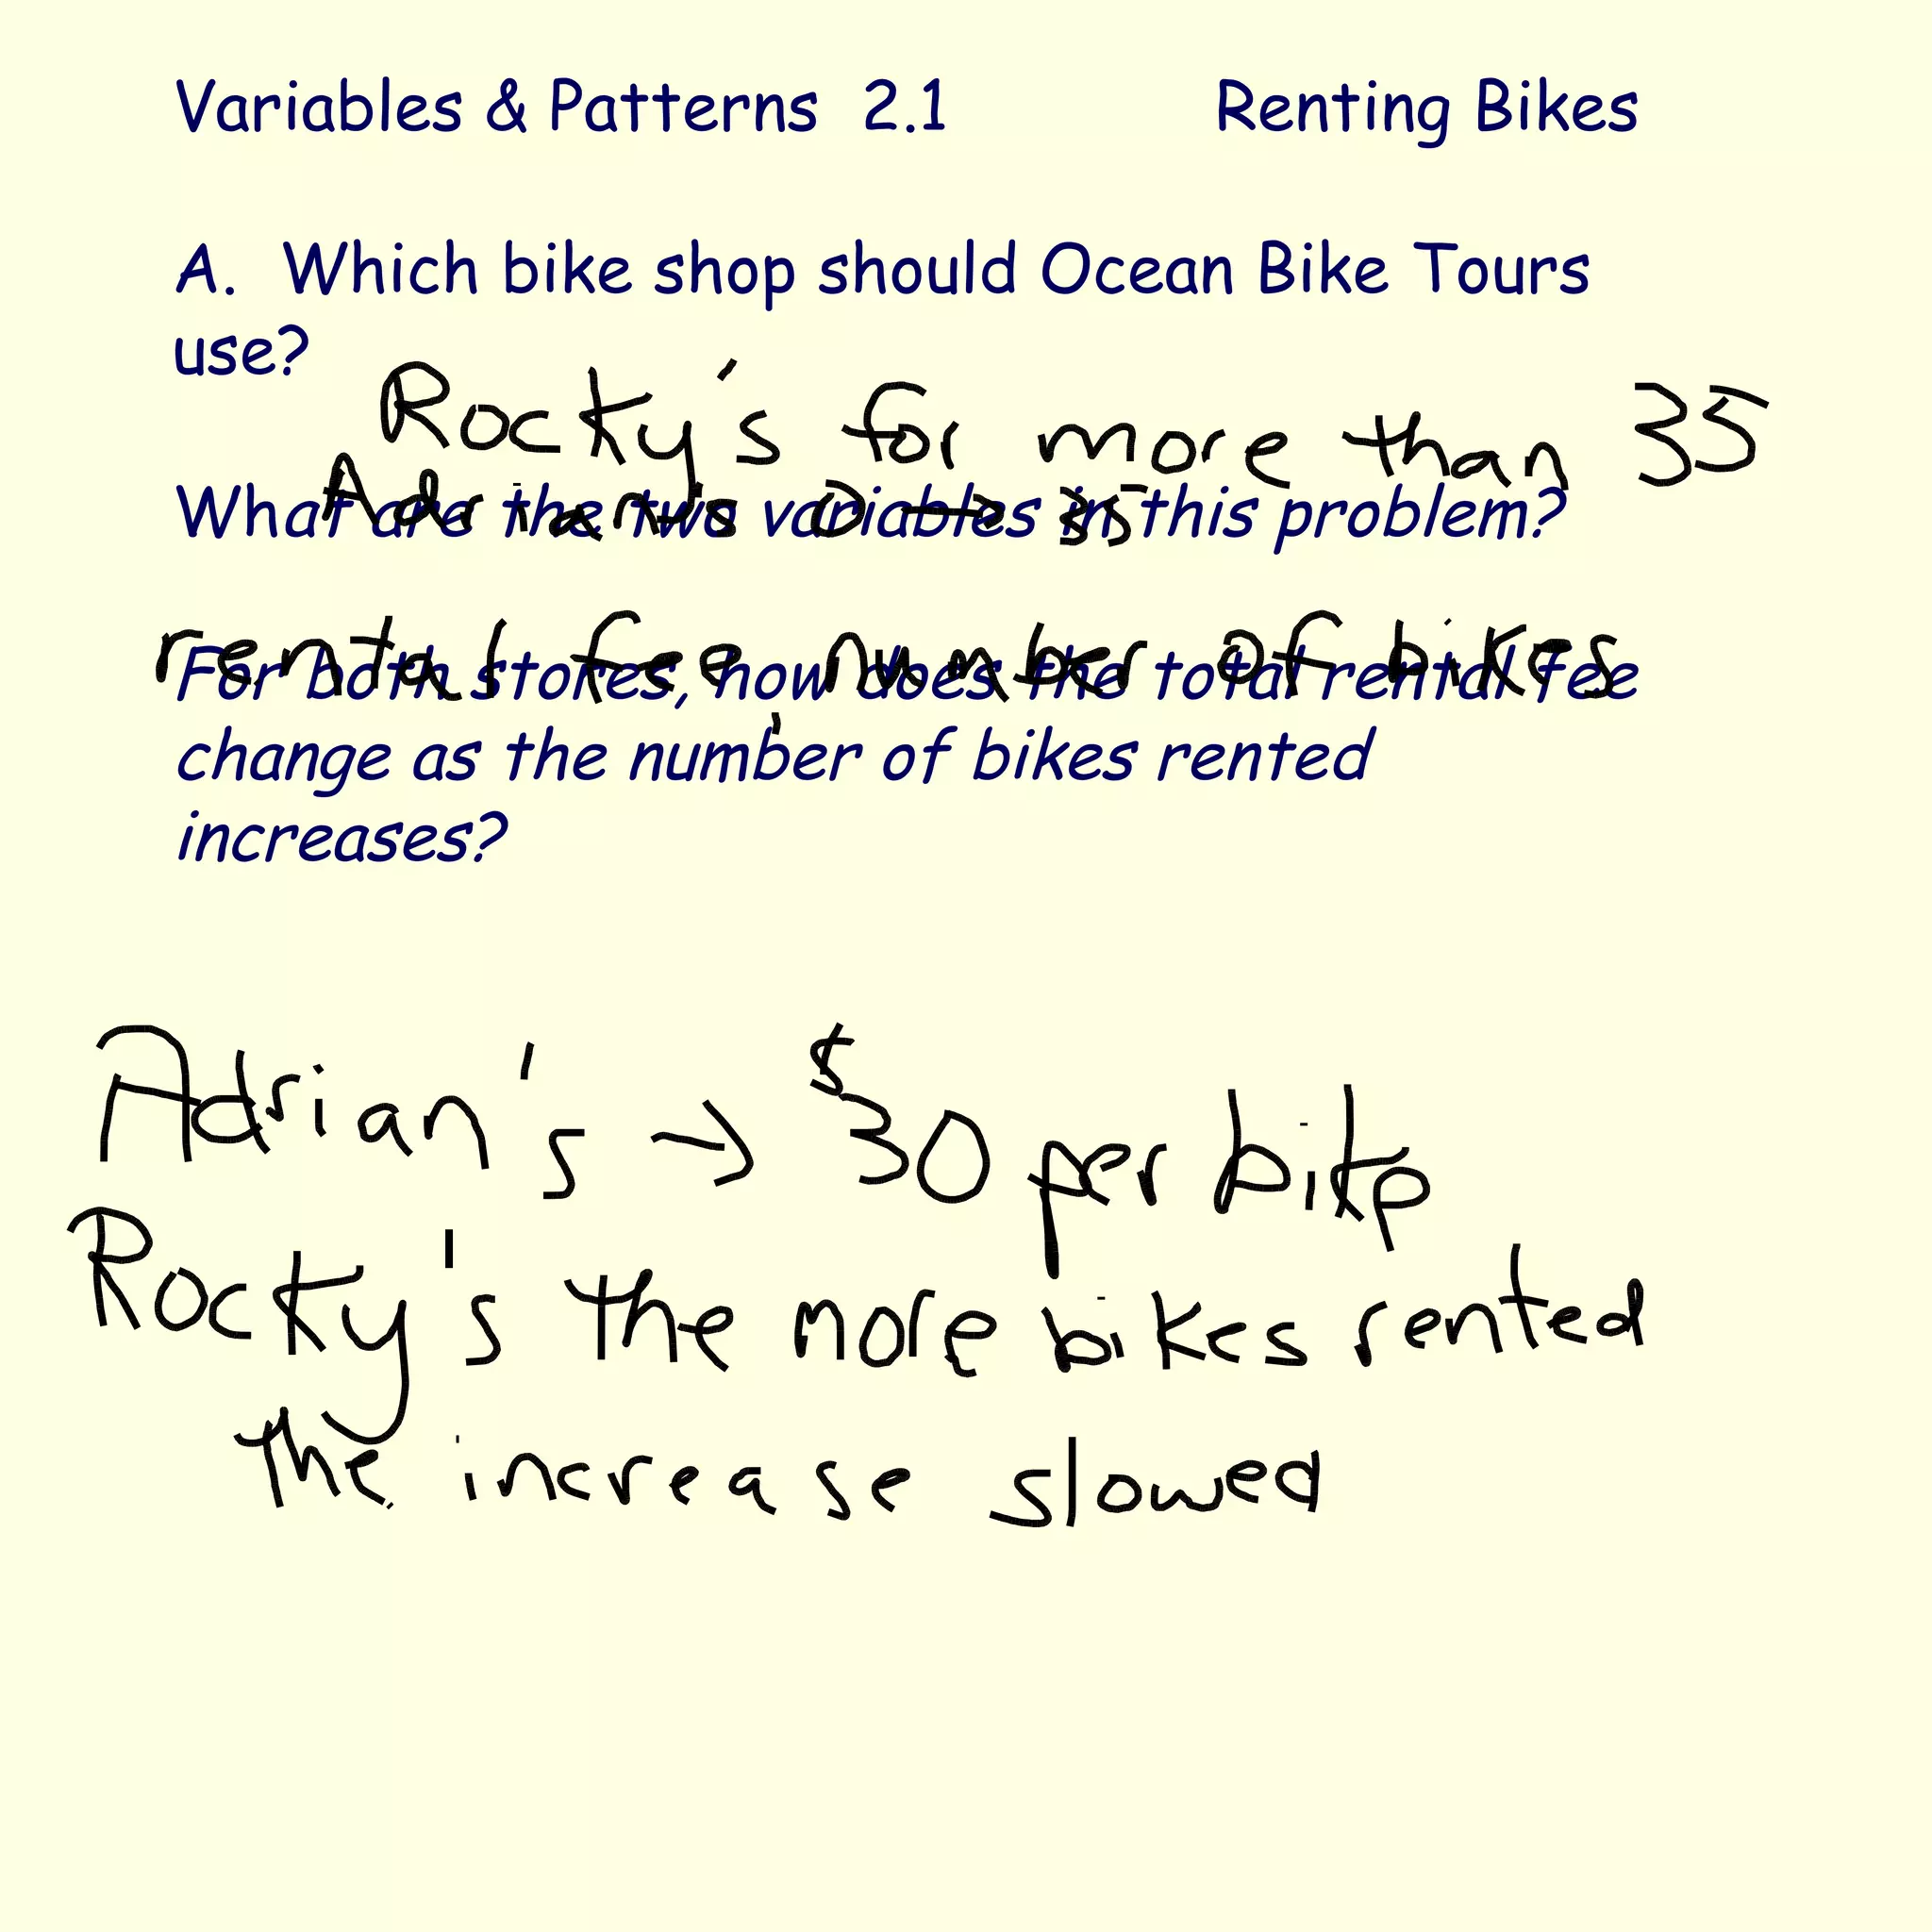 Variables & Patterns 2.1 Renting Bikes
A. Which bike shop should Ocean Bike Tours
use?
Rocky's for more than 35
Adrian's 0 → 35
What are the two variables in this problem?
rental fee, number of bikes
For both stores, how does the total rental fee
change as the number of bikes rented
increases?
Adrian's → $30 per bike
Rocky's the more bikes rented
the increase slowed